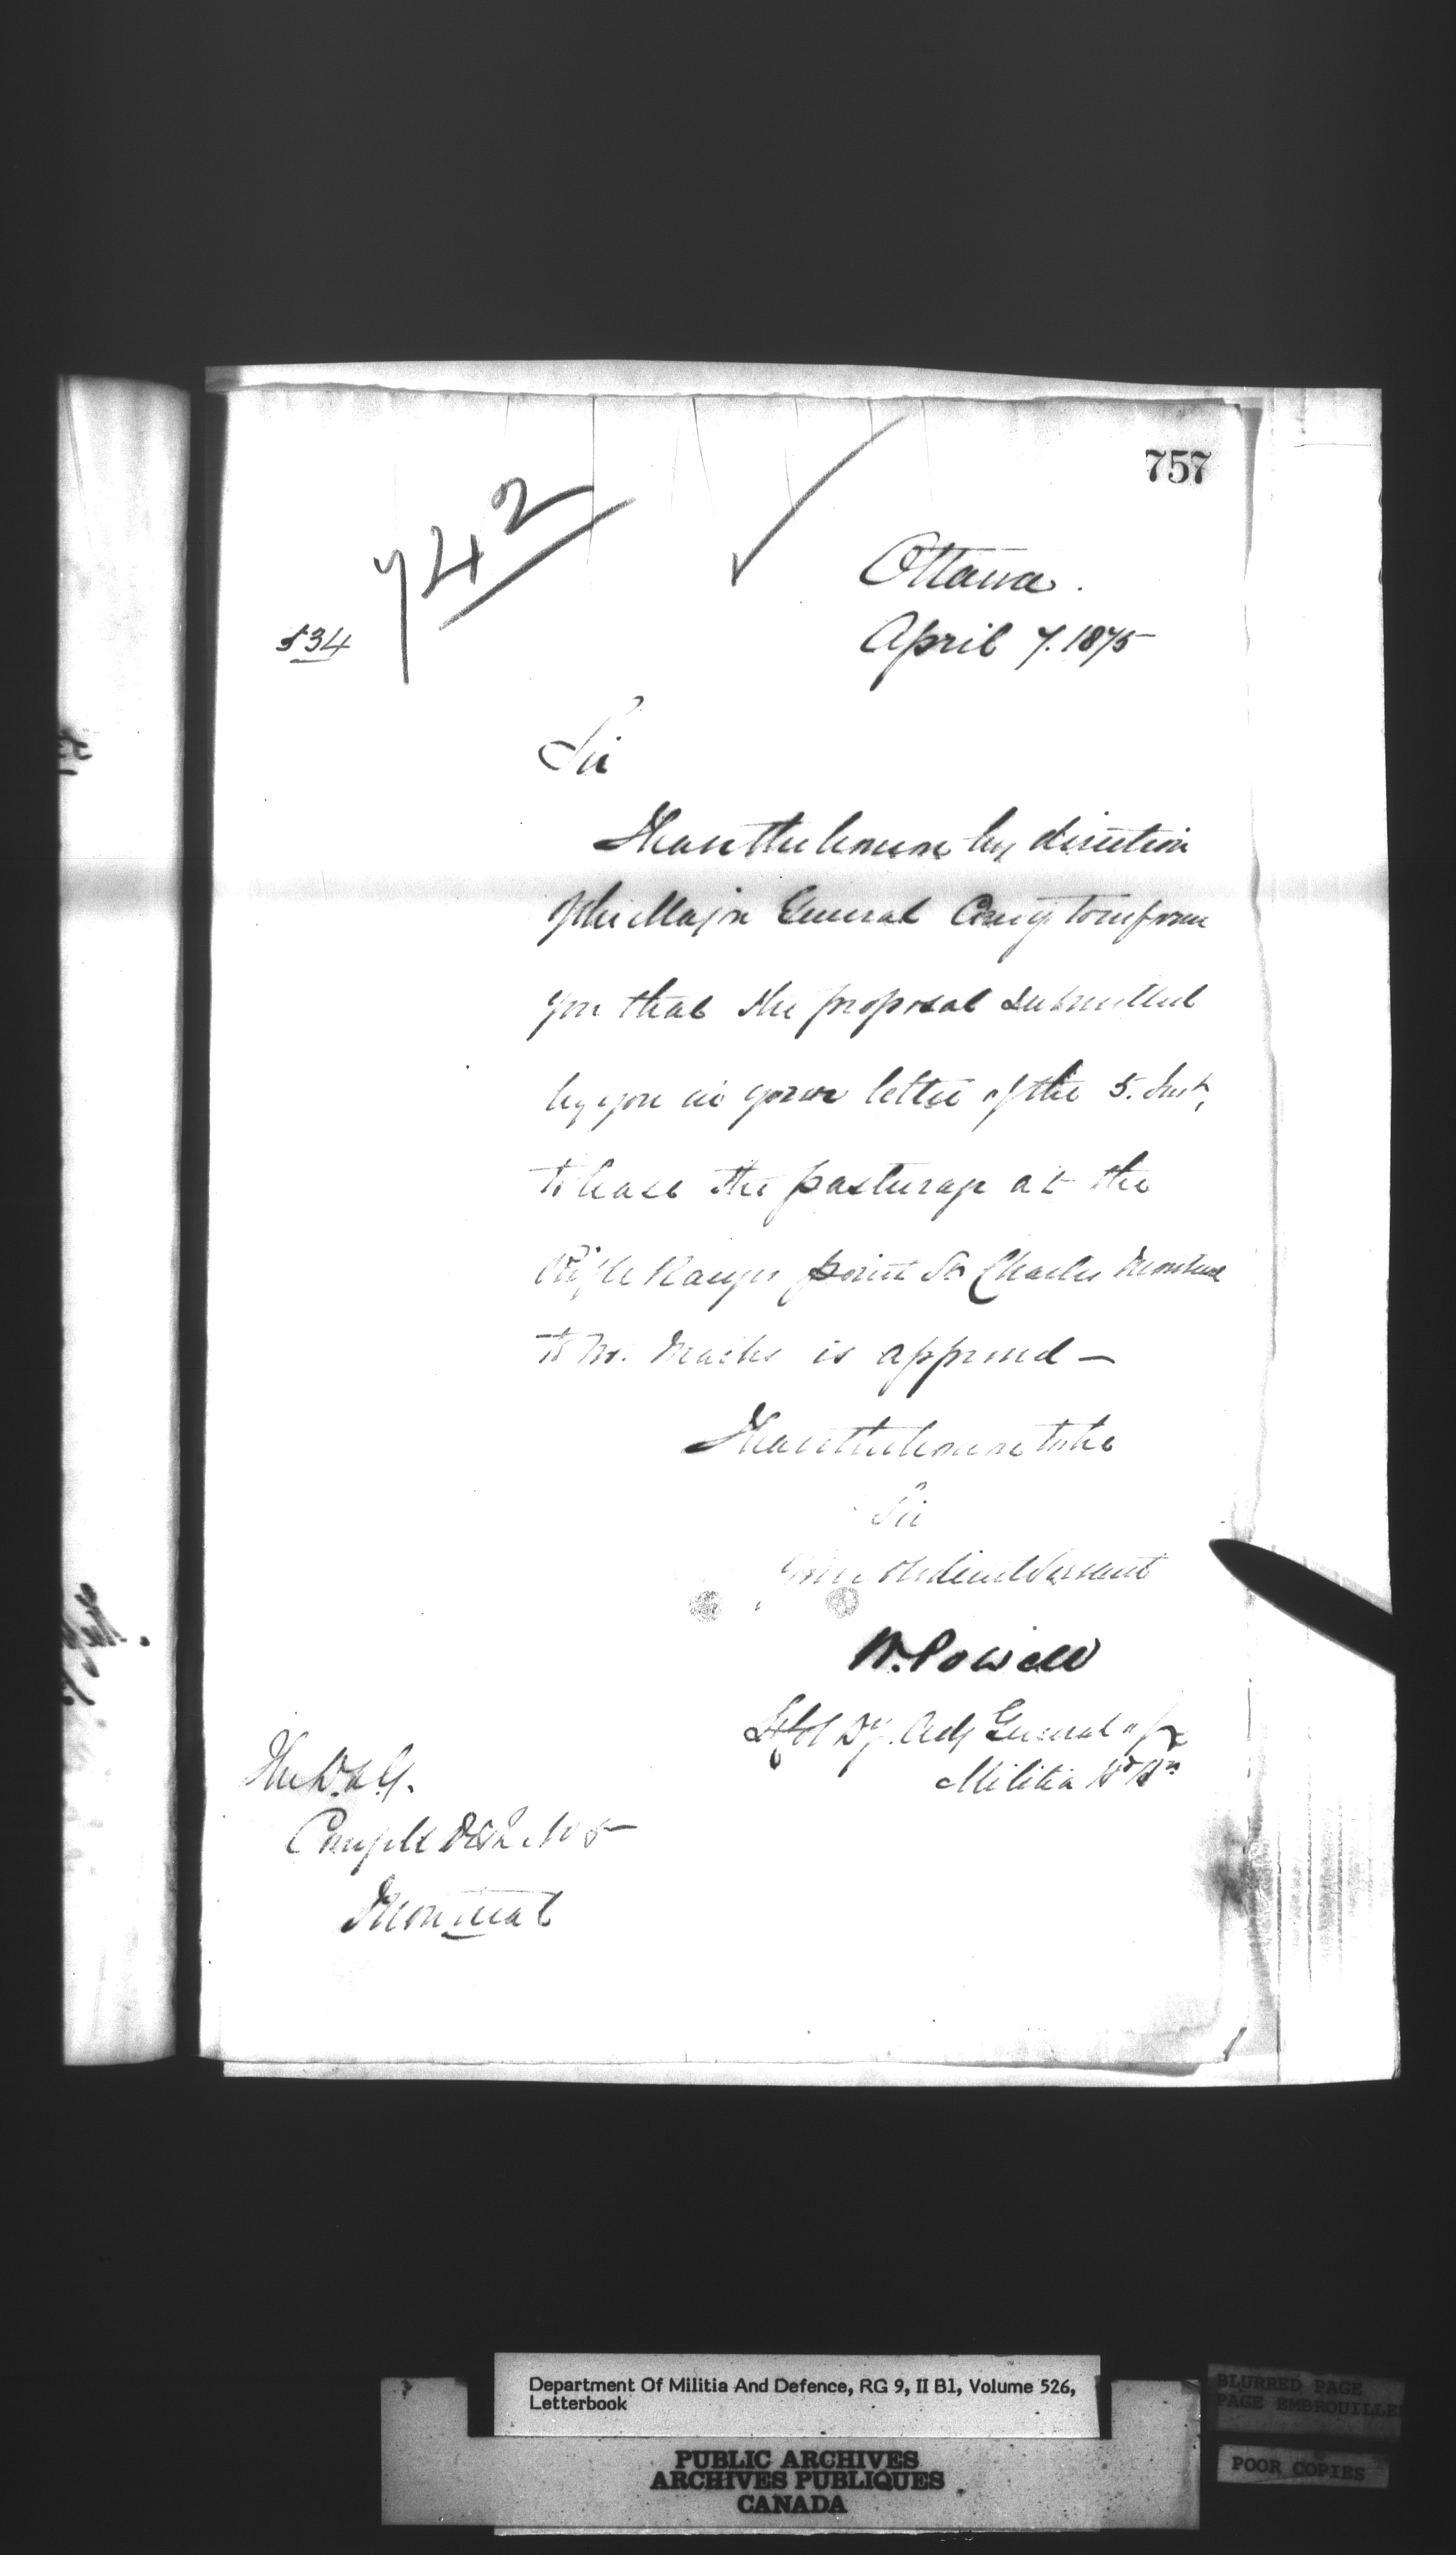 757
742
Ottawa.
April 7. 1875
534
Sir
I have the honor by direction
of the Major General Comg to inform
you that the proposal submitted
by you in your letter of the 5. Inst,
to lease the pasturage at the
Rifle Ranges point St Charles Montreal
to Mr. is approved —
I have the honor to be
Sir
Your obedient Servant
W. Powell
Lt Col Dy. Adj General of
Militia Hd Qrs
The D.A.G.
Comg Mil Dist No 5
Montreal
Department Of Militia And Defence, RG 9, II B1, Volume 526,
Letterbook
PUBLIC ARCHIVES
ARCHIVES PUBLIQUES
CANADA
BLURRED PAGE
PAGE EMBROUILLE
POOR COPIES